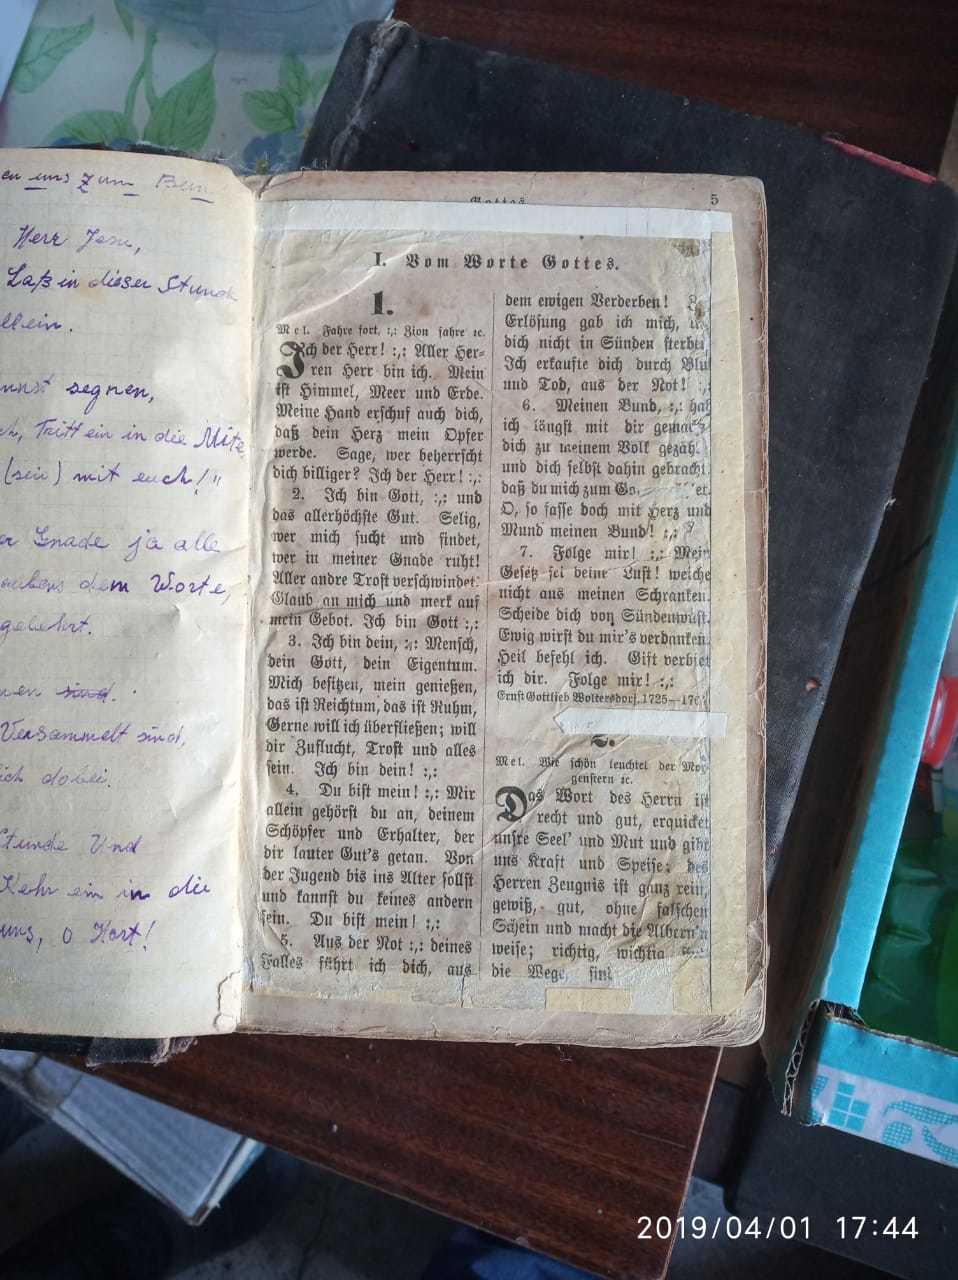 en uns zum Bein
Herr Jesu,
Laß in dieser Stunde
llein.
nnst segnen,
ch, Tritt ein in die Mitte
(sein) mit euch!"
er Gnade ja alle
aubens dem Worte,
gelehrt.
nen sind.
Versammelt sind,
ich dabei.
Stunde Und
Kehr ein in die
uns, o Hort!
Gottes 5
I. Vom Worte Gottes.
1.
Mel. Fahre fort, :,: Zion fahre ꝛc.
Ich der Herr! :,: Aller Her-
ren Herr bin ich. Mein
ist Himmel, Meer und Erde.
Meine Hand erschuf auch dich,
daß dein Herz mein Opfer
werde. Sage, wer beherrscht
dich billiger? Ich der Herr! :,:
2. Ich bin Gott, :,: und
das allerhöchste Gut. Selig,
wer mich sucht und findet,
wer in meiner Gnade ruht!
Aller andre Trost verschwindet:
Glaub an mich und merk auf
mein Gebot. Ich bin Gott :,:
3. Ich bin dein, :,: Mensch,
dein Gott, dein Eigentum.
Mich besitzen, mein genießen,
das ist Reichtum, das ist Ruhm,
Gerne will ich überfließen; will
dir Zuflucht, Trost und alles
sein. Ich bin dein! :,:
4. Du bist mein! :,: Mir
allein gehörst du an, deinem
Schöpfer und Erhalter, der
dir lauter Gut's getan. Von
der Jugend bis ins Alter sollst
und kannst du keines andern
sein. Du bist mein! :,:
5. Aus der Not :,: deines
Falles führt ich dich, aus
dem ewigen Verderben!
Erlösung gab ich mich,
dich nicht in Sünden sterben
Ich erkaufte dich durch Blut
und Tod, aus der Not! :,:
6. Meinen Bund, :,: hab
ich längst mit dir gemacht
dich zu meinem Volk gezähl
und dich selbst dahin gebracht,
daß du mich zum
O, so fasse doch mit Herz und
Mund meinen Bund! :,:
7. Folge mir! :,: Mein
Gesetz sei deine Lust! weiche
nicht aus meinen Schranken.
Scheide dich von Sündenwust.
Ewig wirst du mir's verdanken.
Heil befehl ich. Gift verbiet
ich dir. Folge mir! :,:
Ernst Gottlieb Woltersdorf, 1725—176
2.
Mel. Wie schön leuchtet der Mor
genstern ꝛc.
Das Wort des Herrn ist
recht und gut, erquicket
unsre Seel' und Mut und gibt
uns Kraft und Speise; des
Herren Zeugnis ist ganz rein,
gewiß, gut, ohne falschen
Schein und macht die Albern'n
weise; richtig, wichtig
die Wege, sind
2019/04/01 17:44